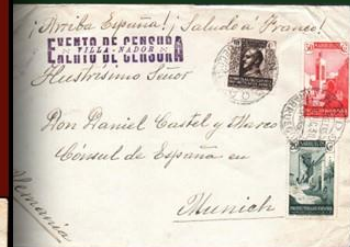 ¡Arriba España! ¡Saludo á Franco!
EXENTO DE CENSURA
VILLA-NADOR
Ilustrísimo Señor
Don Daniel Castel y Marco
Cónsul de España en
Munich
Alemania